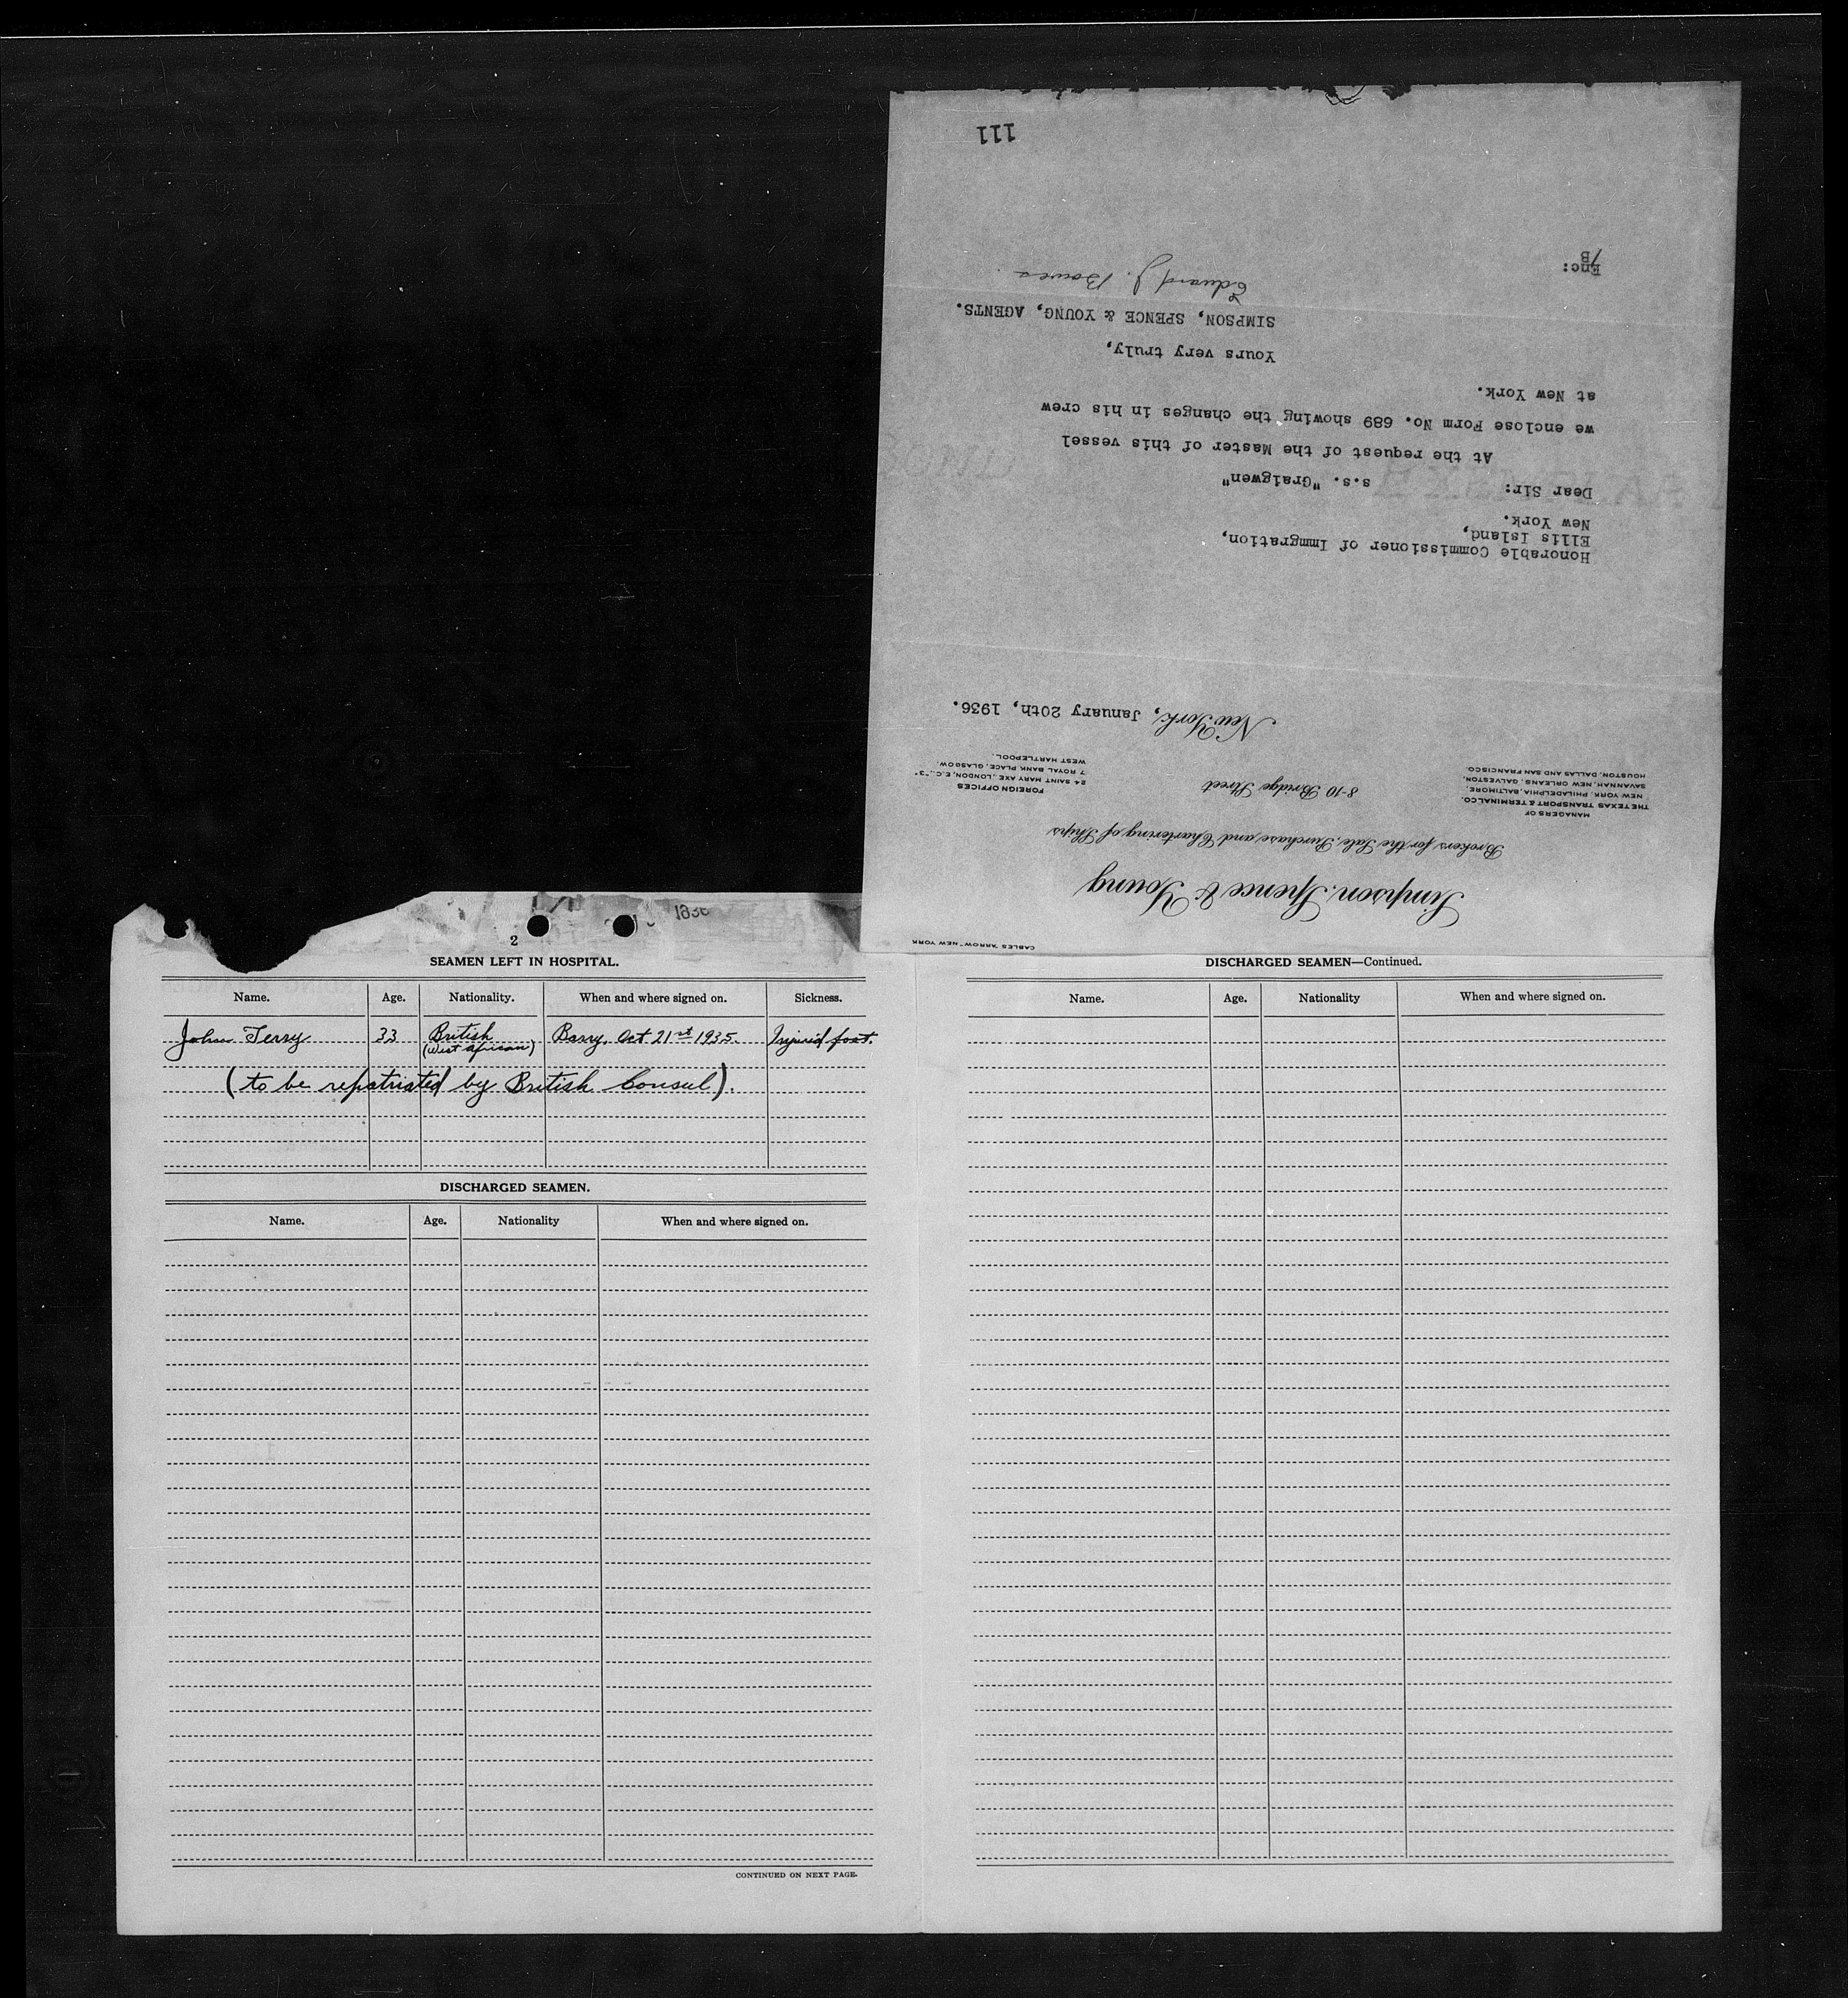 CABLES "ARROW" NEW YORK
Simpson, Spence & Young
Brokers for the Sale, Purchase and Chartering of Ships
MANAGERS OF
THE TEXAS TRANSPORT & TERMINAL CO.
NEW YORK, PHILADELPHIA, BALTIMORE,
SAVANNAH, NEW ORLEANS, GALVESTON,
HOUSTON, DALLAS AND SAN FRANCISCO.
8-10 Bridge Street
FOREIGN OFFICES
24 SAINT MARY AXE, LONDON, E.C., "3"
7 ROYAL BANK PLACE, GLASGOW,
WEST HARTLEPOOL.
New York, January 20th, 1936.
Honorable Commissioner of Immgration,
Ellis Island,
New York.
Dear Sir: s.s. "Graigwen"
At the request of the Master of this vessel
we enclose Form No. 689 showing the changes in his crew
at New York.
Yours very truly,
SIMPSON, SPENCE & YOUNG, AGENTS.
Edward J. Bowes
Enc:
/B
111
1936
2
SEAMEN LEFT IN HOSPITAL.
Name. Age. Nationality. When and where signed on. Sickness.
John Terry 33 British (West African) Barry, Oct 21st 1935. Injured foot.
(to be repatriated by British Consul).
DISCHARGED SEAMEN.
Name. Age. Nationality When and where signed on.
CONTINUED ON NEXT PAGE.
DISCHARGED SEAMEN—Continued.
Name. Age. Nationality When and where signed on.